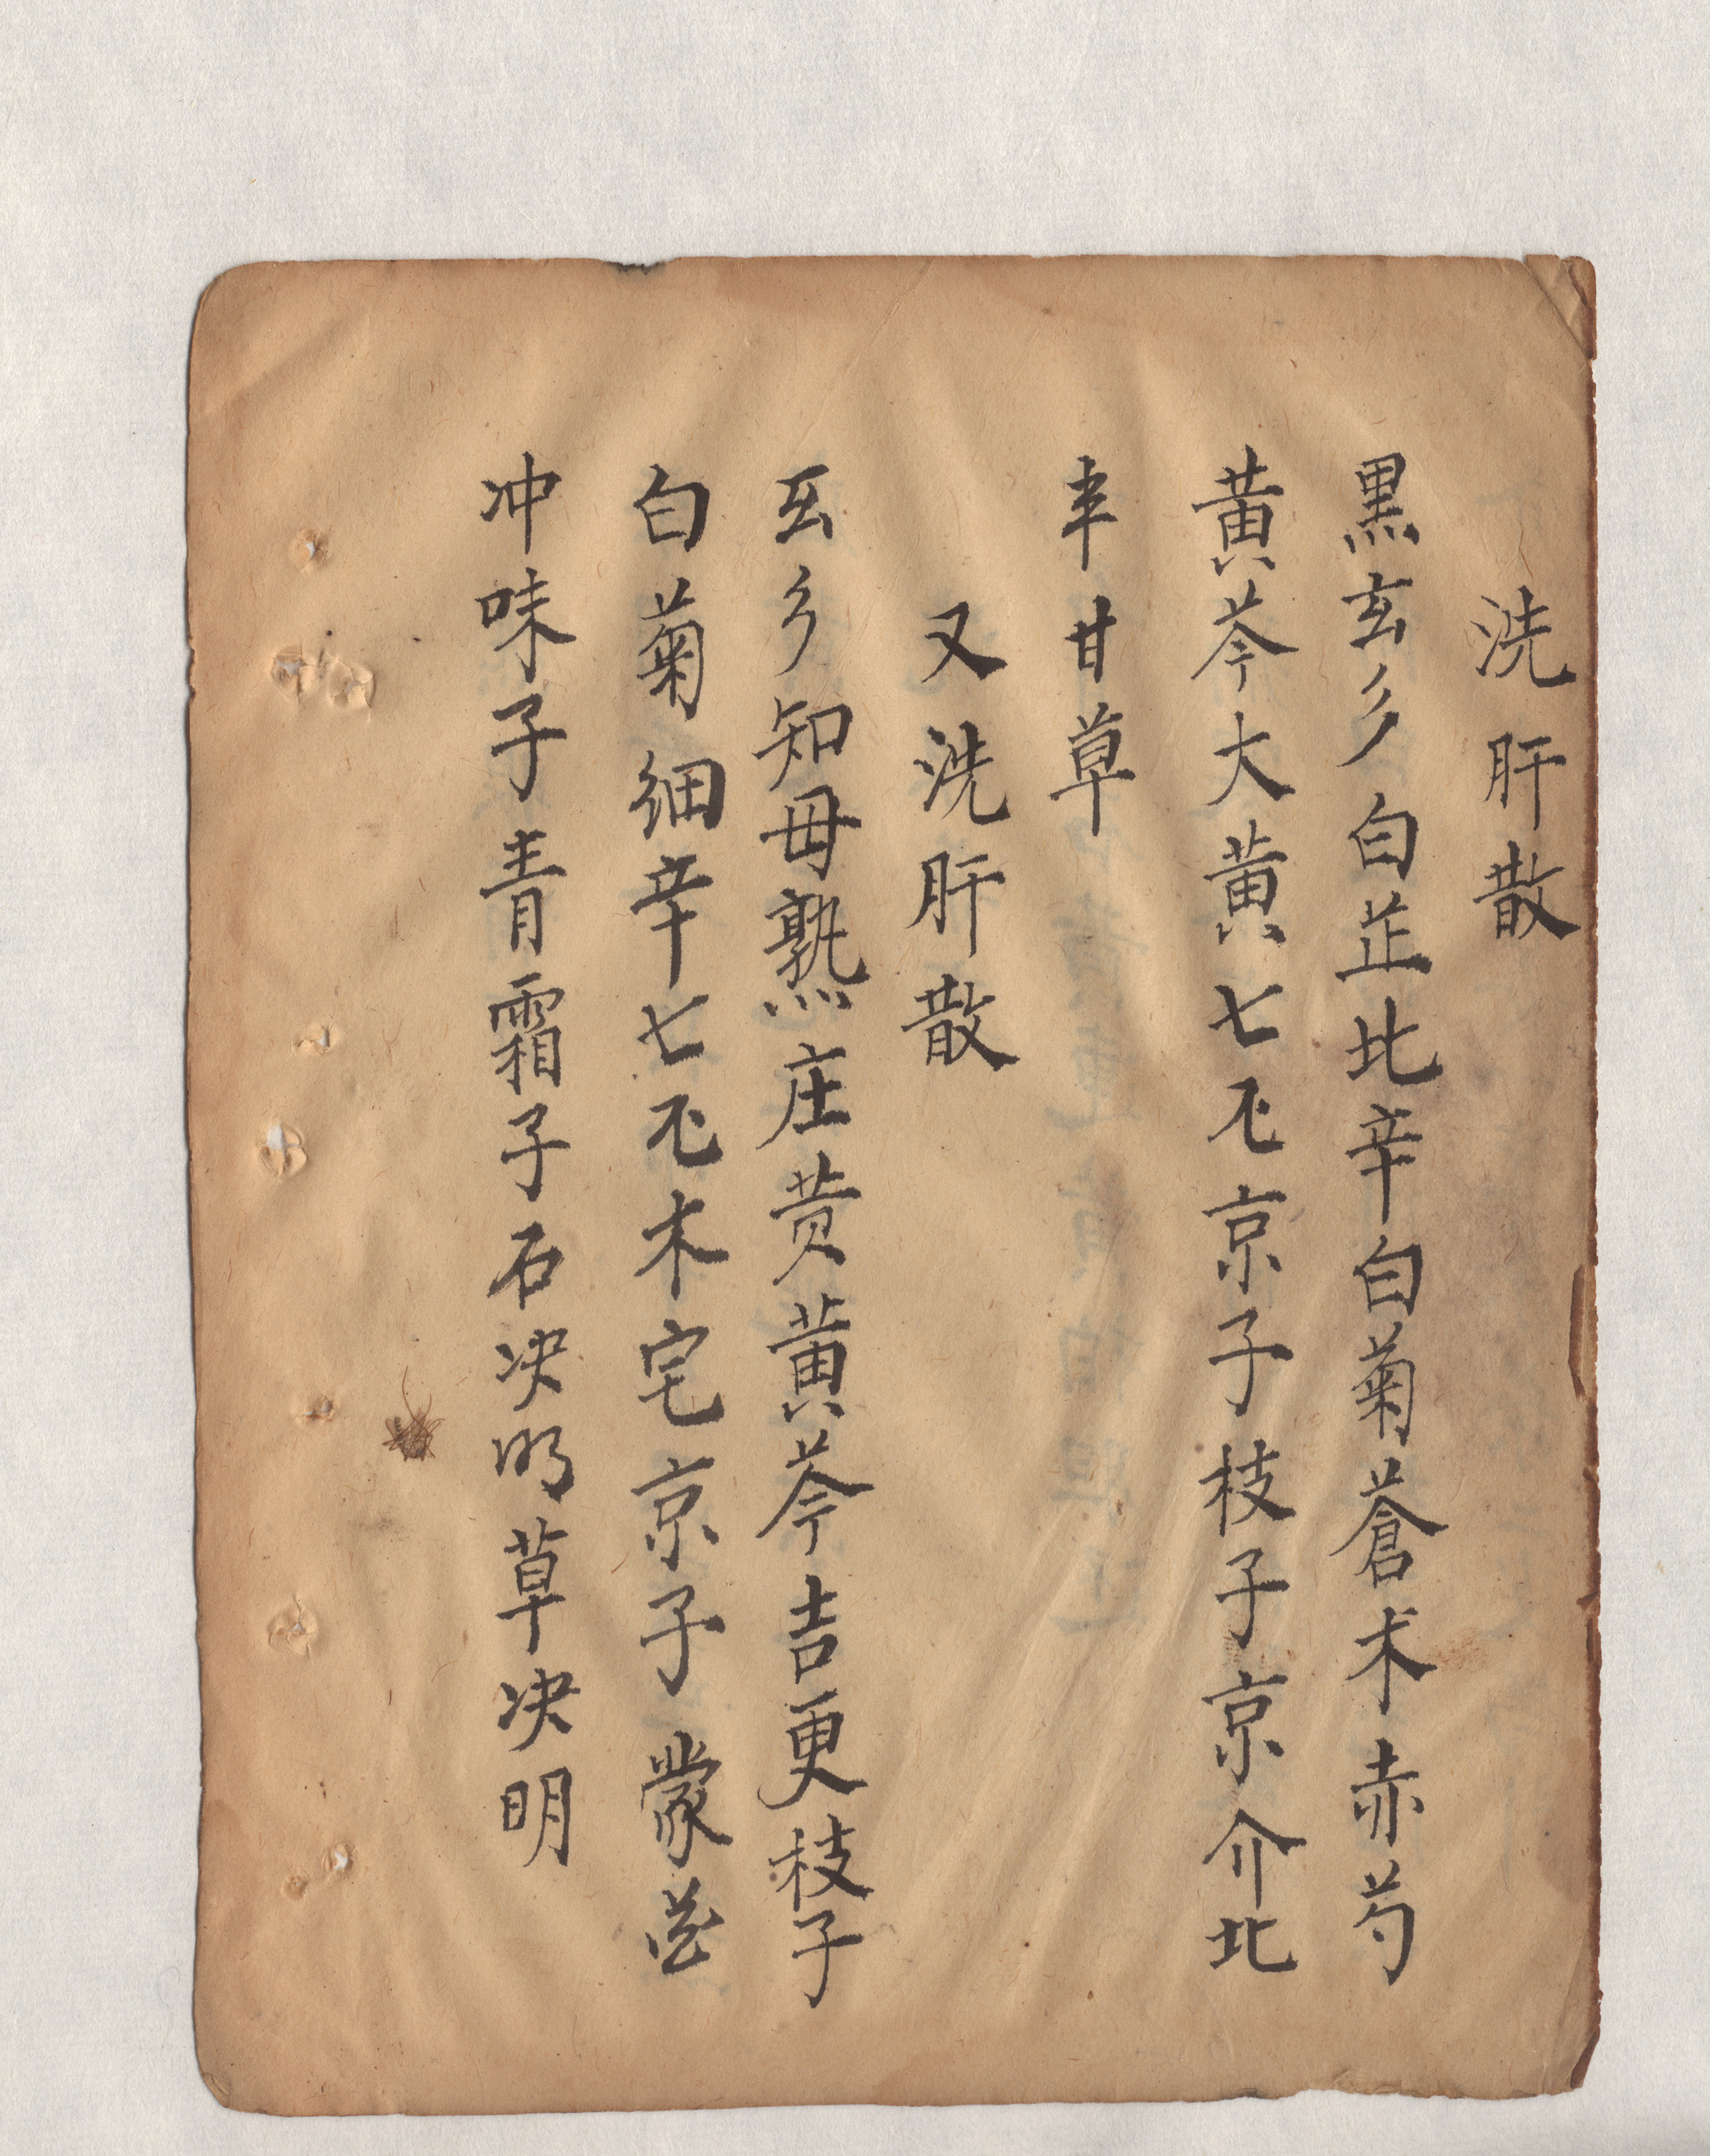 洗肝散
黒玄乡白芷北辛白菊蒼术赤芍
黄芩大黄七下京子枝子京介北
丰甘草
又洗肝散
玄乡知母熟庄黄黄芩吉更枝子
白菊细辛七下木宅京子蒙花
冲味子青霜子石决明草决明